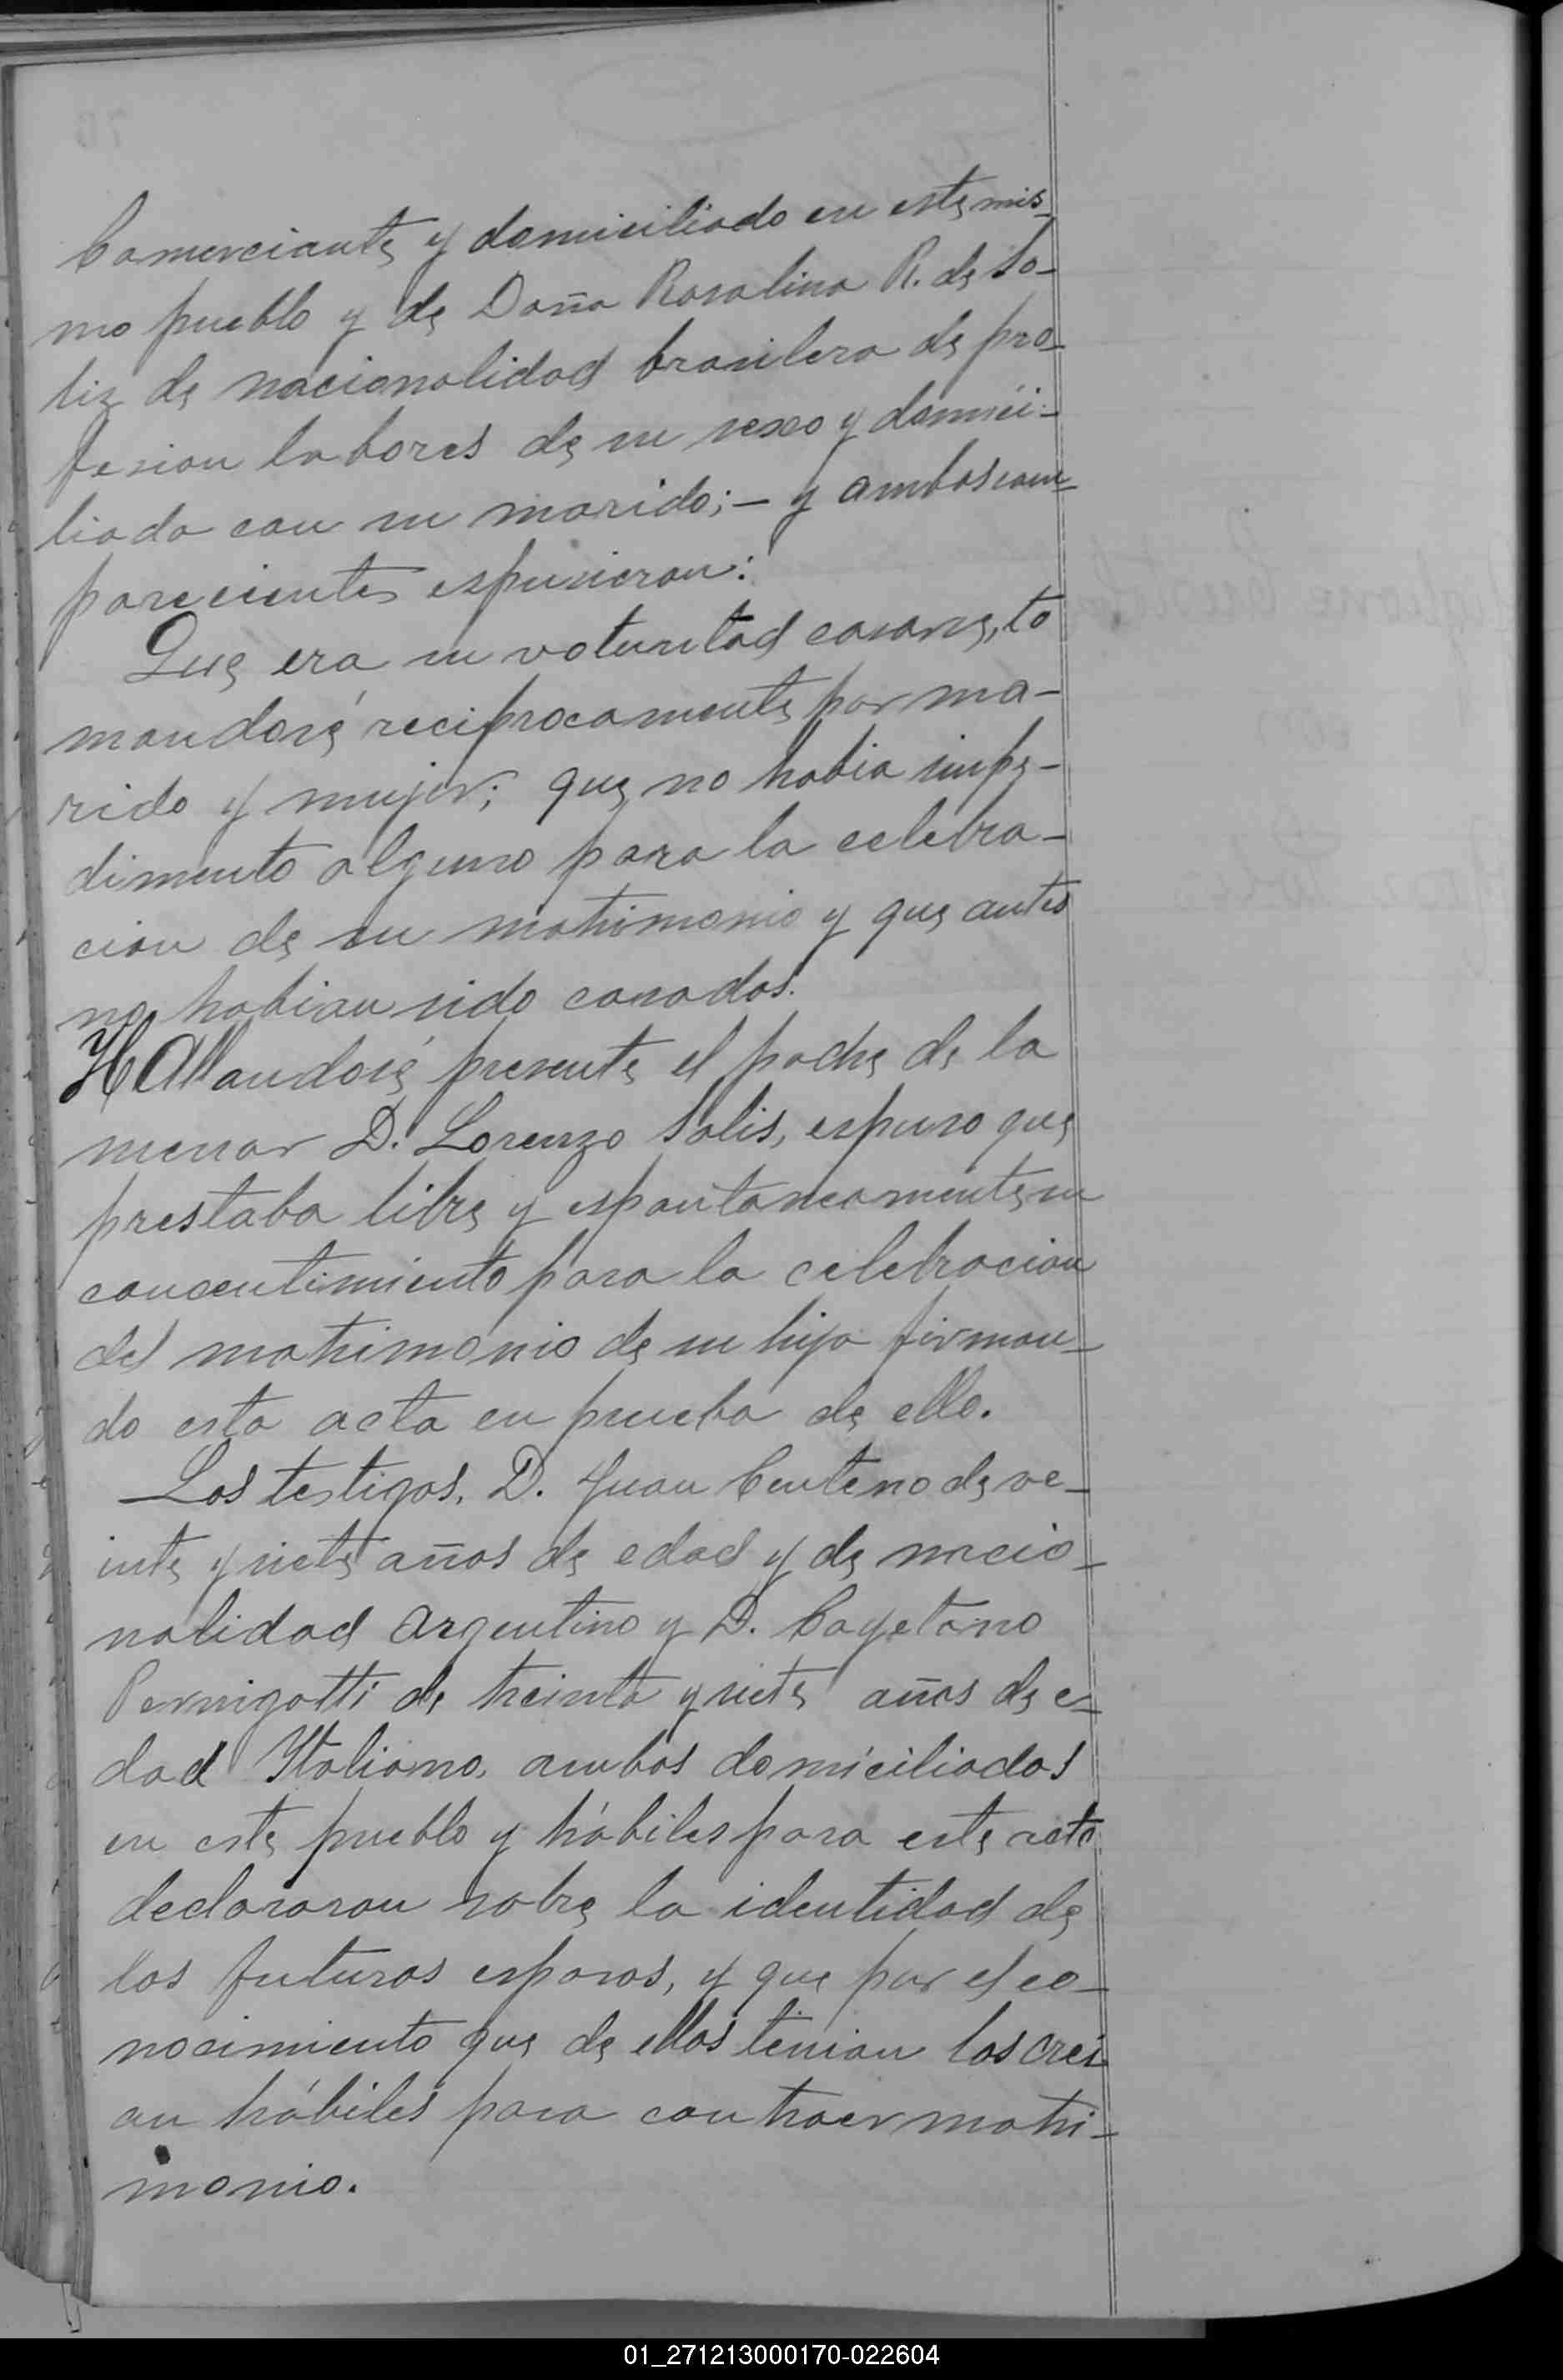 Comerciante y domiciliado en este mis-
mo pueblo y de Doña Rosalina R. de So-
liz de nacionalidad brasilera de pro-
fesion labores de su sexo y domici-
liada con su marido;- y ambos com-
parecientes espusieron:
Que era su voluntad casarse, to
mandose reciprocamente por ma-
rido y mujer; que no habia impe-
dimento alguno para la celebra-
cion de su matrimonio y que antes
no habian sido casados.
Hallandose presente el padre de la
menor D. Lorenzo Solis, espuso que
prestaba libre y espontaneamente su
concentimiento para la celebracion
del matrimonio de su hija firman-
do esta acta en prueba de ello.
Los testigos, D. Juan Centeno de ve-
inte y siete años de edad y de nacio-
nalidad Argentino y D. Cayetano
Pernigotti de treinta y siete años de e-
dad Italiano, ambos domiciliados
en este pueblo y hábiles para este acto
declararon sobre la identidad de
los futuros esposos, y que por el co-
nocimiento que de ellos tenian los crei
an hábiles para contraer matri-
monio.
01_271213000170-022604